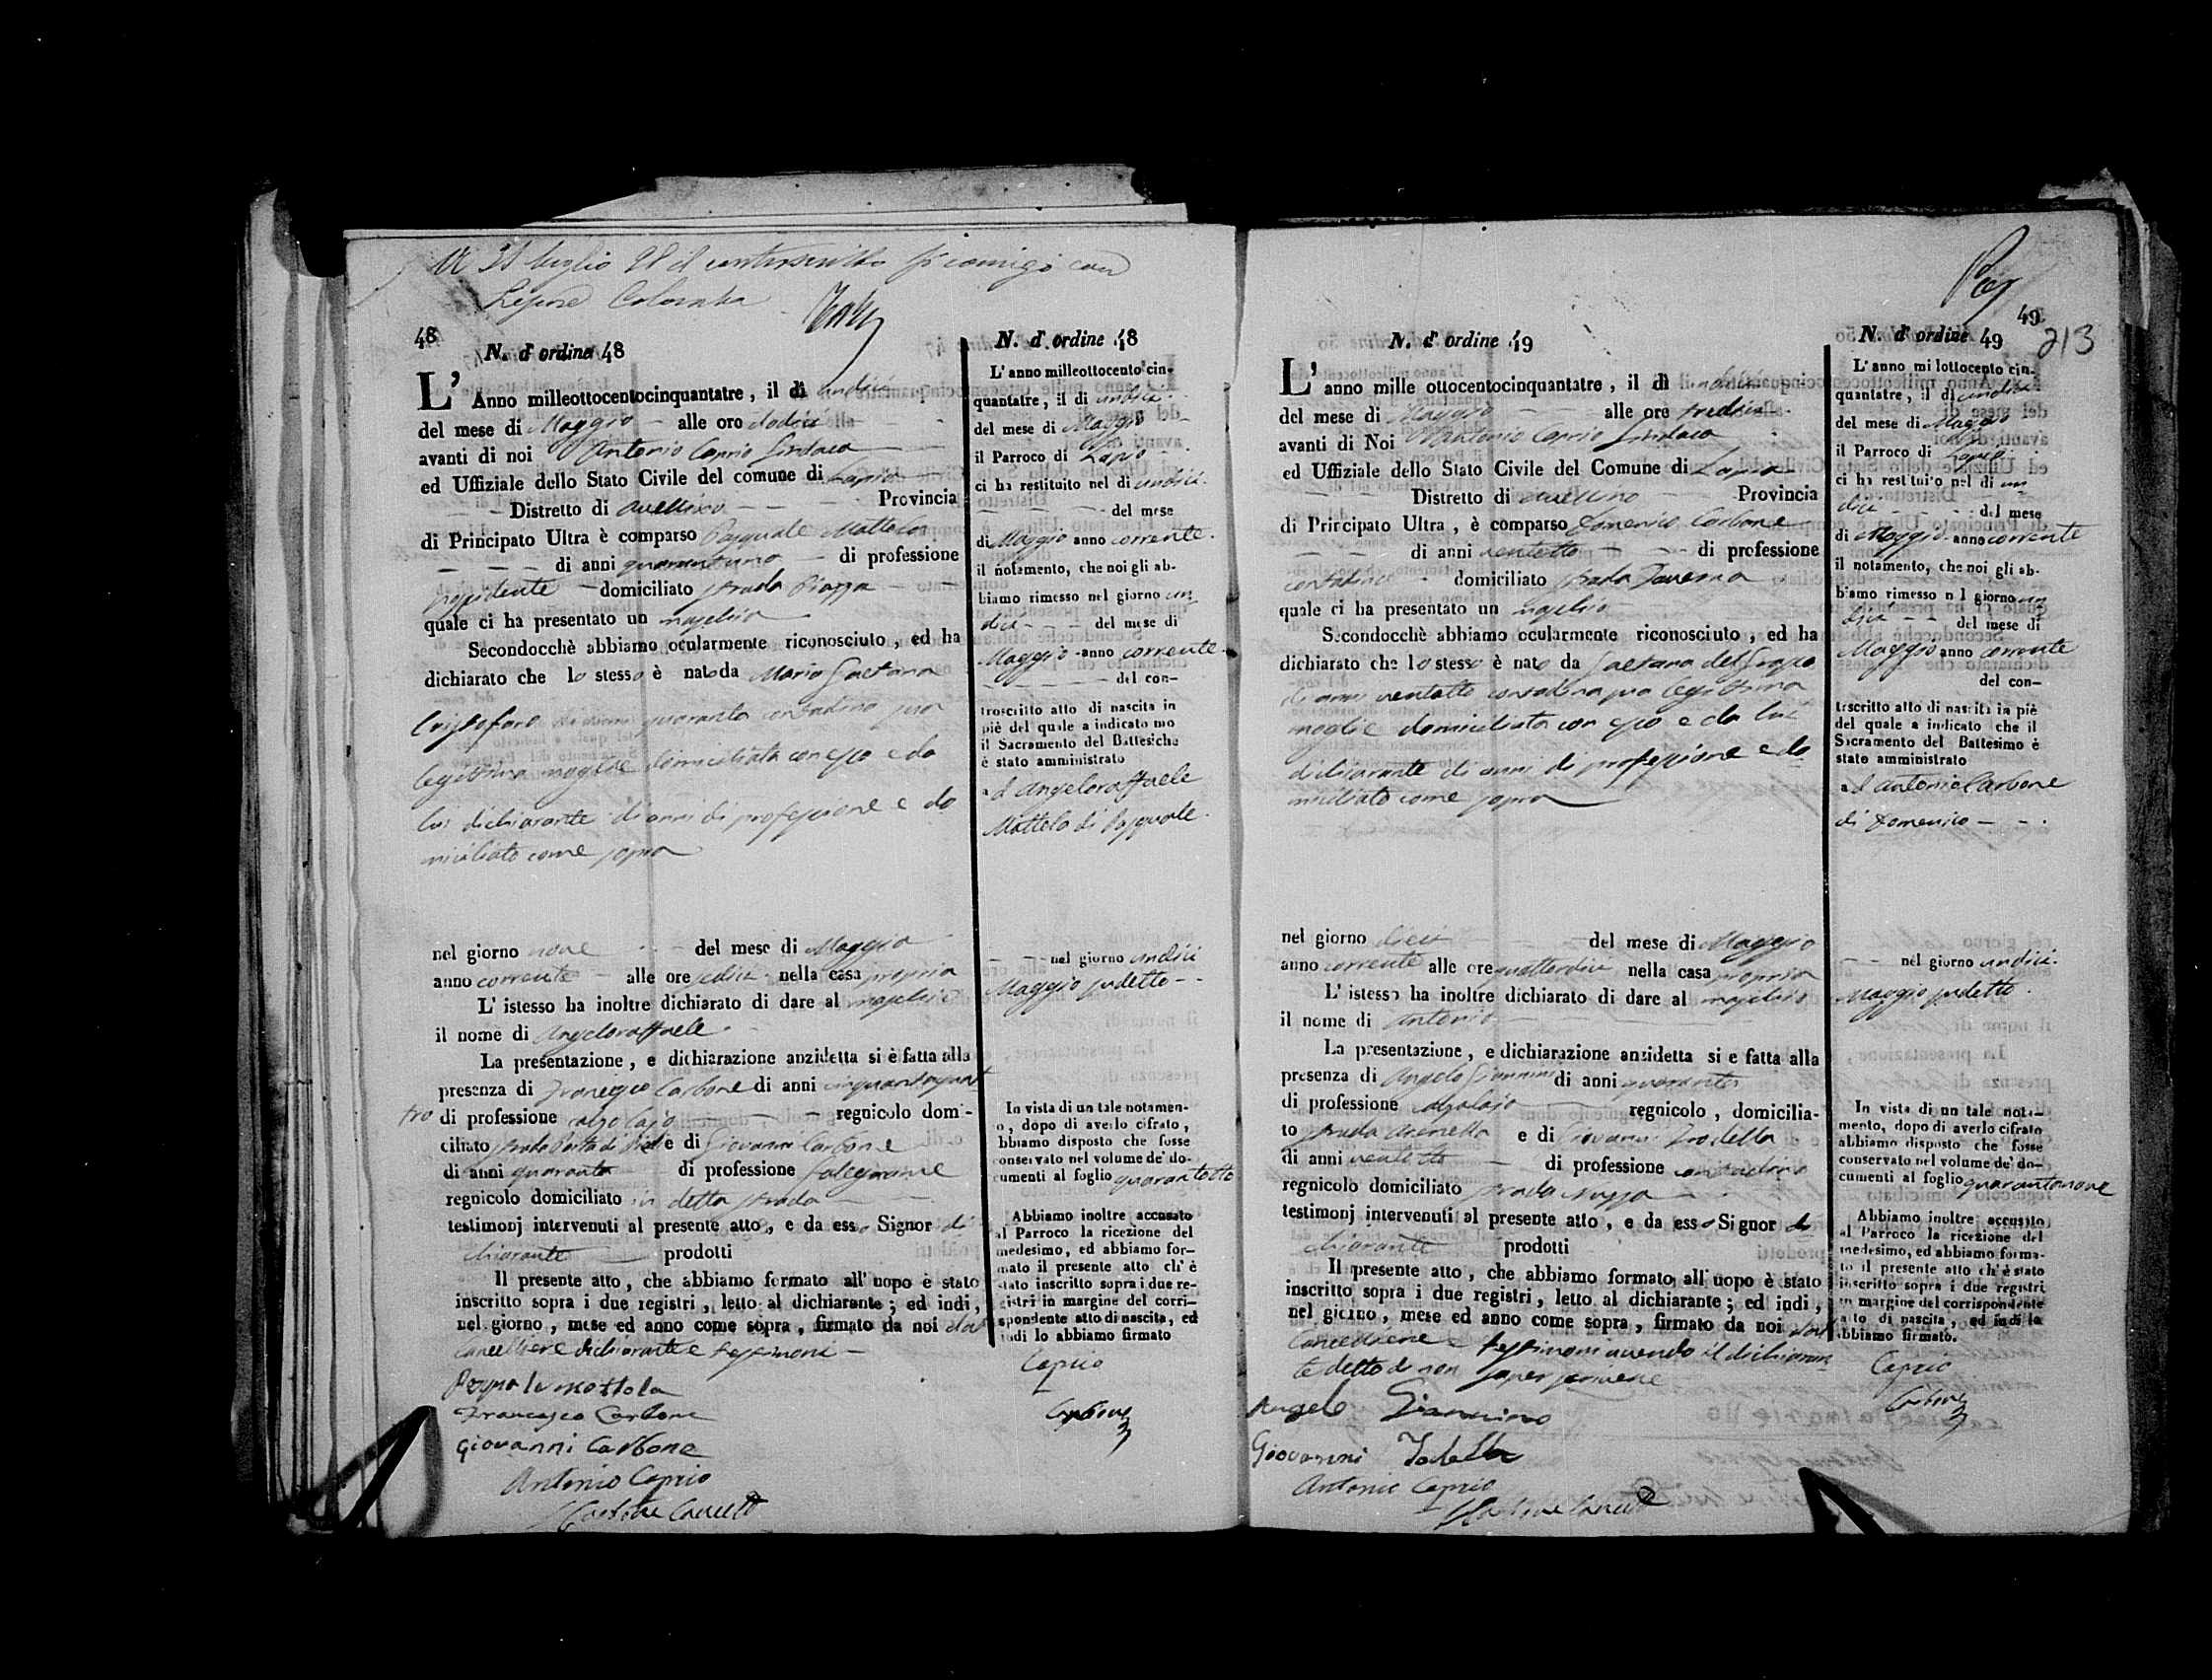 A 21 luglio 98 il controscritto si coniugò con
Lepore Colomba
48
N. d'ordine 48
L'Anno milleottocentocinquantatre, il di undici
del mese di Maggio alle ore dodici
avanti di noi Antonio Caprio Sindaco
ed Uffiziale dello Stato Civile del comune di Lapio
Distretto di Avellino Provincia
di Principato Ultra è comparso Pasquale Mottola
di anni quarantuno di professione
possidente domiciliato strada Piazza
quale ci ha presentato un maschio
Secondocchè abbiamo ocularmente riconosciuto, ed ha
dichiarato che lo stesso è nato da Maria Gaetana
Cristofaro di anni quaranta contadina sua
legittima moglie domiciliata con esso e da
lui dichiarante di anni di professione e do
miciliato come sopra
nel giorno nove del mese di Maggio
anno corrente alle ore sedici nella casa propria
L'istesso ha inoltre dichiarato di dare al maschio
il nome di Angeloraffaele
La presentazione, e dichiarazione anzidetta si è fatta alla
presenza di Francesco Carbone di anni cinquantaquat
tro di professione calzolajo regnicolo domi-
ciliato strada Porta di Piede e di Giovanni Carbone
di anni quaranta di professione falegname
regnicolo domiciliato in detta strada
testimonj intervenuti al presente atto, e da esso Signor di
chiarante prodotti
Il presente atto, che abbiamo formato all'uopo è stato
inscritto sopra i due registri, letto al dichiarante; ed indi,
nel giorno, mese ed anno come sopra, firmato da noi dal
cancelliere dichiarante e testimoni
Pasquale Mottola
Francesco Carbone
Giovanni Carbone
Antonio Caprio
N. d'ordine 48
L'anno milleottocento cin-
quantatre, il di undici
del mese di Maggio
il Parroco di Lapio
ci ha restituito nel di undici
del mese
di Maggio anno corrente
il notamento, che noi gli ab-
biamo rimesso nel giorno un
dici del mese di
Maggio anno corrente
del con-
troscritto atto di nascita in
piè del quale a indicato mo
il Sacramento del Battesiche
è stato amministrato
ad Angeloraffaele
Mottola di Pasquale
nel giorno undici
Maggio sudetto
In vista di un tale notamen-
o, dopo di averlo cifrato,
bbiamo disposto che fosse
conservato nel volume de' do-
cumenti al foglio quarantotto
Abbiamo inoltre accusato
al Parroco la ricezione del
medesimo, ed abbiamo for-
mato il presente atto ch'è
stato inscritto sopra i due re-
gistri in margine del corri-
spondente atto di nascita, ed
indi lo abbiamo firmato
Caprio
Carbone
49
213
N. d'ordine 49
L'anno mille ottocentocinquantatre, il di undici
del mese di Maggio alle ore tredici
avanti di Noi Antonio Caprio Sindaco
ed Uffiziale dello Stato Civile del Comune di Lapio
Distretto di Avellino Provincia
di Principato Ultra, è comparso Domenico Carbone
di anni ventotto di professione
contadino domiciliato strada Taverna
quale ci ha presentato un maschio
Secondocchè abbiamo ocularmente riconosciuto, ed ha
dichiarato che lo stesso è nato da Gaetana del Grosso
di anni ventotto contadina sua legittima
moglie domiciliata con esso e da lui
dichiarante di anni di professione e do
miciliato come sopra
nel giorno dieci del mese di Maggio
anno corrente alle ore quattordici nella casa propria
L'istesso ha inoltre dichiarato di dare al maschio
il nome di Antonio
La presentazione, e dichiarazione anzidetta si e fatta alla
presenza di Angelo Giannino di anni quaranta
di professione calzolajo regnicolo, domicilia-
to strada Arenella e di Giovanni
di anni ventotto di professione contadino
regnicolo domiciliato strada
testimonj intervenuti al presente atto, e da esso Signor di
chiarante prodotti
Il presente atto, che abbiamo formato all'uopo è stato
inscritto sopra i due registri, letto al dichiarante; ed indi,
nel giorno, mese ed anno come sopra, firmato da noi dal
Cancelliere e testimoni avendo il dichiaran
te detto di non saper scrivere
Angelo Giannino
Giovanni
Antonio Caprio
N. d'ordine 49
L'anno mi lottocento cin-
quantatre, il di undici
del mese di Maggio
il Parroco di Lapio
ci ha restituito nel di un
dici del mese
di Maggio anno corrente
il notamento, che noi gli ab-
biamo rimesso n l giorno un
dici del mese di
Maggio anno corrente
del con-
trscritto atto di nascita in piè
del quale a indicato che il
Sacramento del Battesimo è
stato amministrato
ad Antonio Carbone
di Domenico
nel giorno undici
Maggio sudetto
In vista di un tale nota-
mento, dopo di averlo cifrato
abbiamo disposto che fosse
conservato nel volume de' do-
cumenti al foglio quarantanove
Abbiamo inoltre accusato
al Parroco la ricezione del
medesimo, ed abbiamo forma-
to il presente atto ch'è stato
inscritto sopra i due registri
in margine del corrispondente
atto di nascita, ed indi lo
abbiamo firmato.
Caprio
Carbone